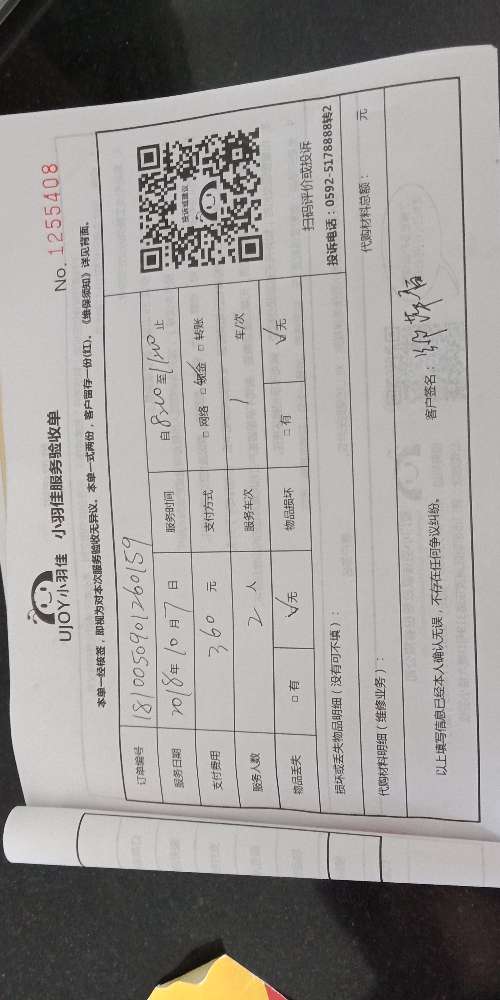 UJOY小羽佳 小羽佳服务验收单
No. 1255408
本单一经核签，即视为对本次服务验收无异议。本单一式两份，客户留存一份(红)。《维保须知》详见背面。
订单编号 1810050901260159
服务日期 2018年10月7日 服务时间 自8:00至11:20止
支付费用 360元 支付方式 □网络 □现金 □转账
服务人数 2人 服务车次 1 车/次
物品丢失 □有 √无 物品损坏 □有 √无
投诉或建议
扫码评价或投诉
投诉电话：0592-5178888转2
损坏或丢失物品明细（没有可不填）：
代购材料明细（维修业务）： 代购材料总额： 元
以上填写信息已经本人确认无误，不存在任何争议纠纷。
客户签名：